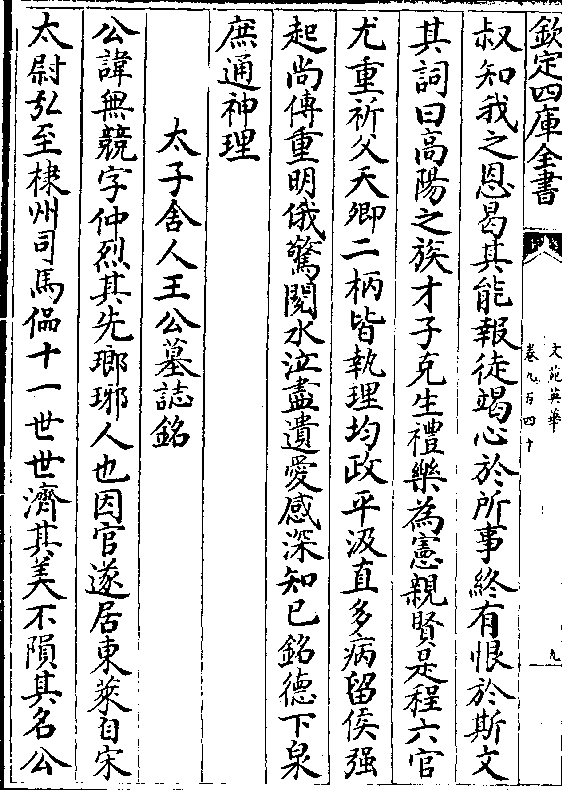 欽定四庫全書
文苑英華
卷九百四十
九
叔知我之恩曷其能報徒竭心於所事終有恨於斯文
其詞曰高陽之族才子克生禮樂為憲親賢是程六官
尤重祈父天卿二柄皆執理均政平汲直多病留侯强
起尚傳重明俄驚閱水泣盡遺愛感深知已銘德下泉
庶通神理
太子舍人王公墓誌銘
公諱無競字仲烈其先瑯琊人也因官遂居東萊自宋
太尉弘至棣州司馬偘十一世世濟其美不隕其名公